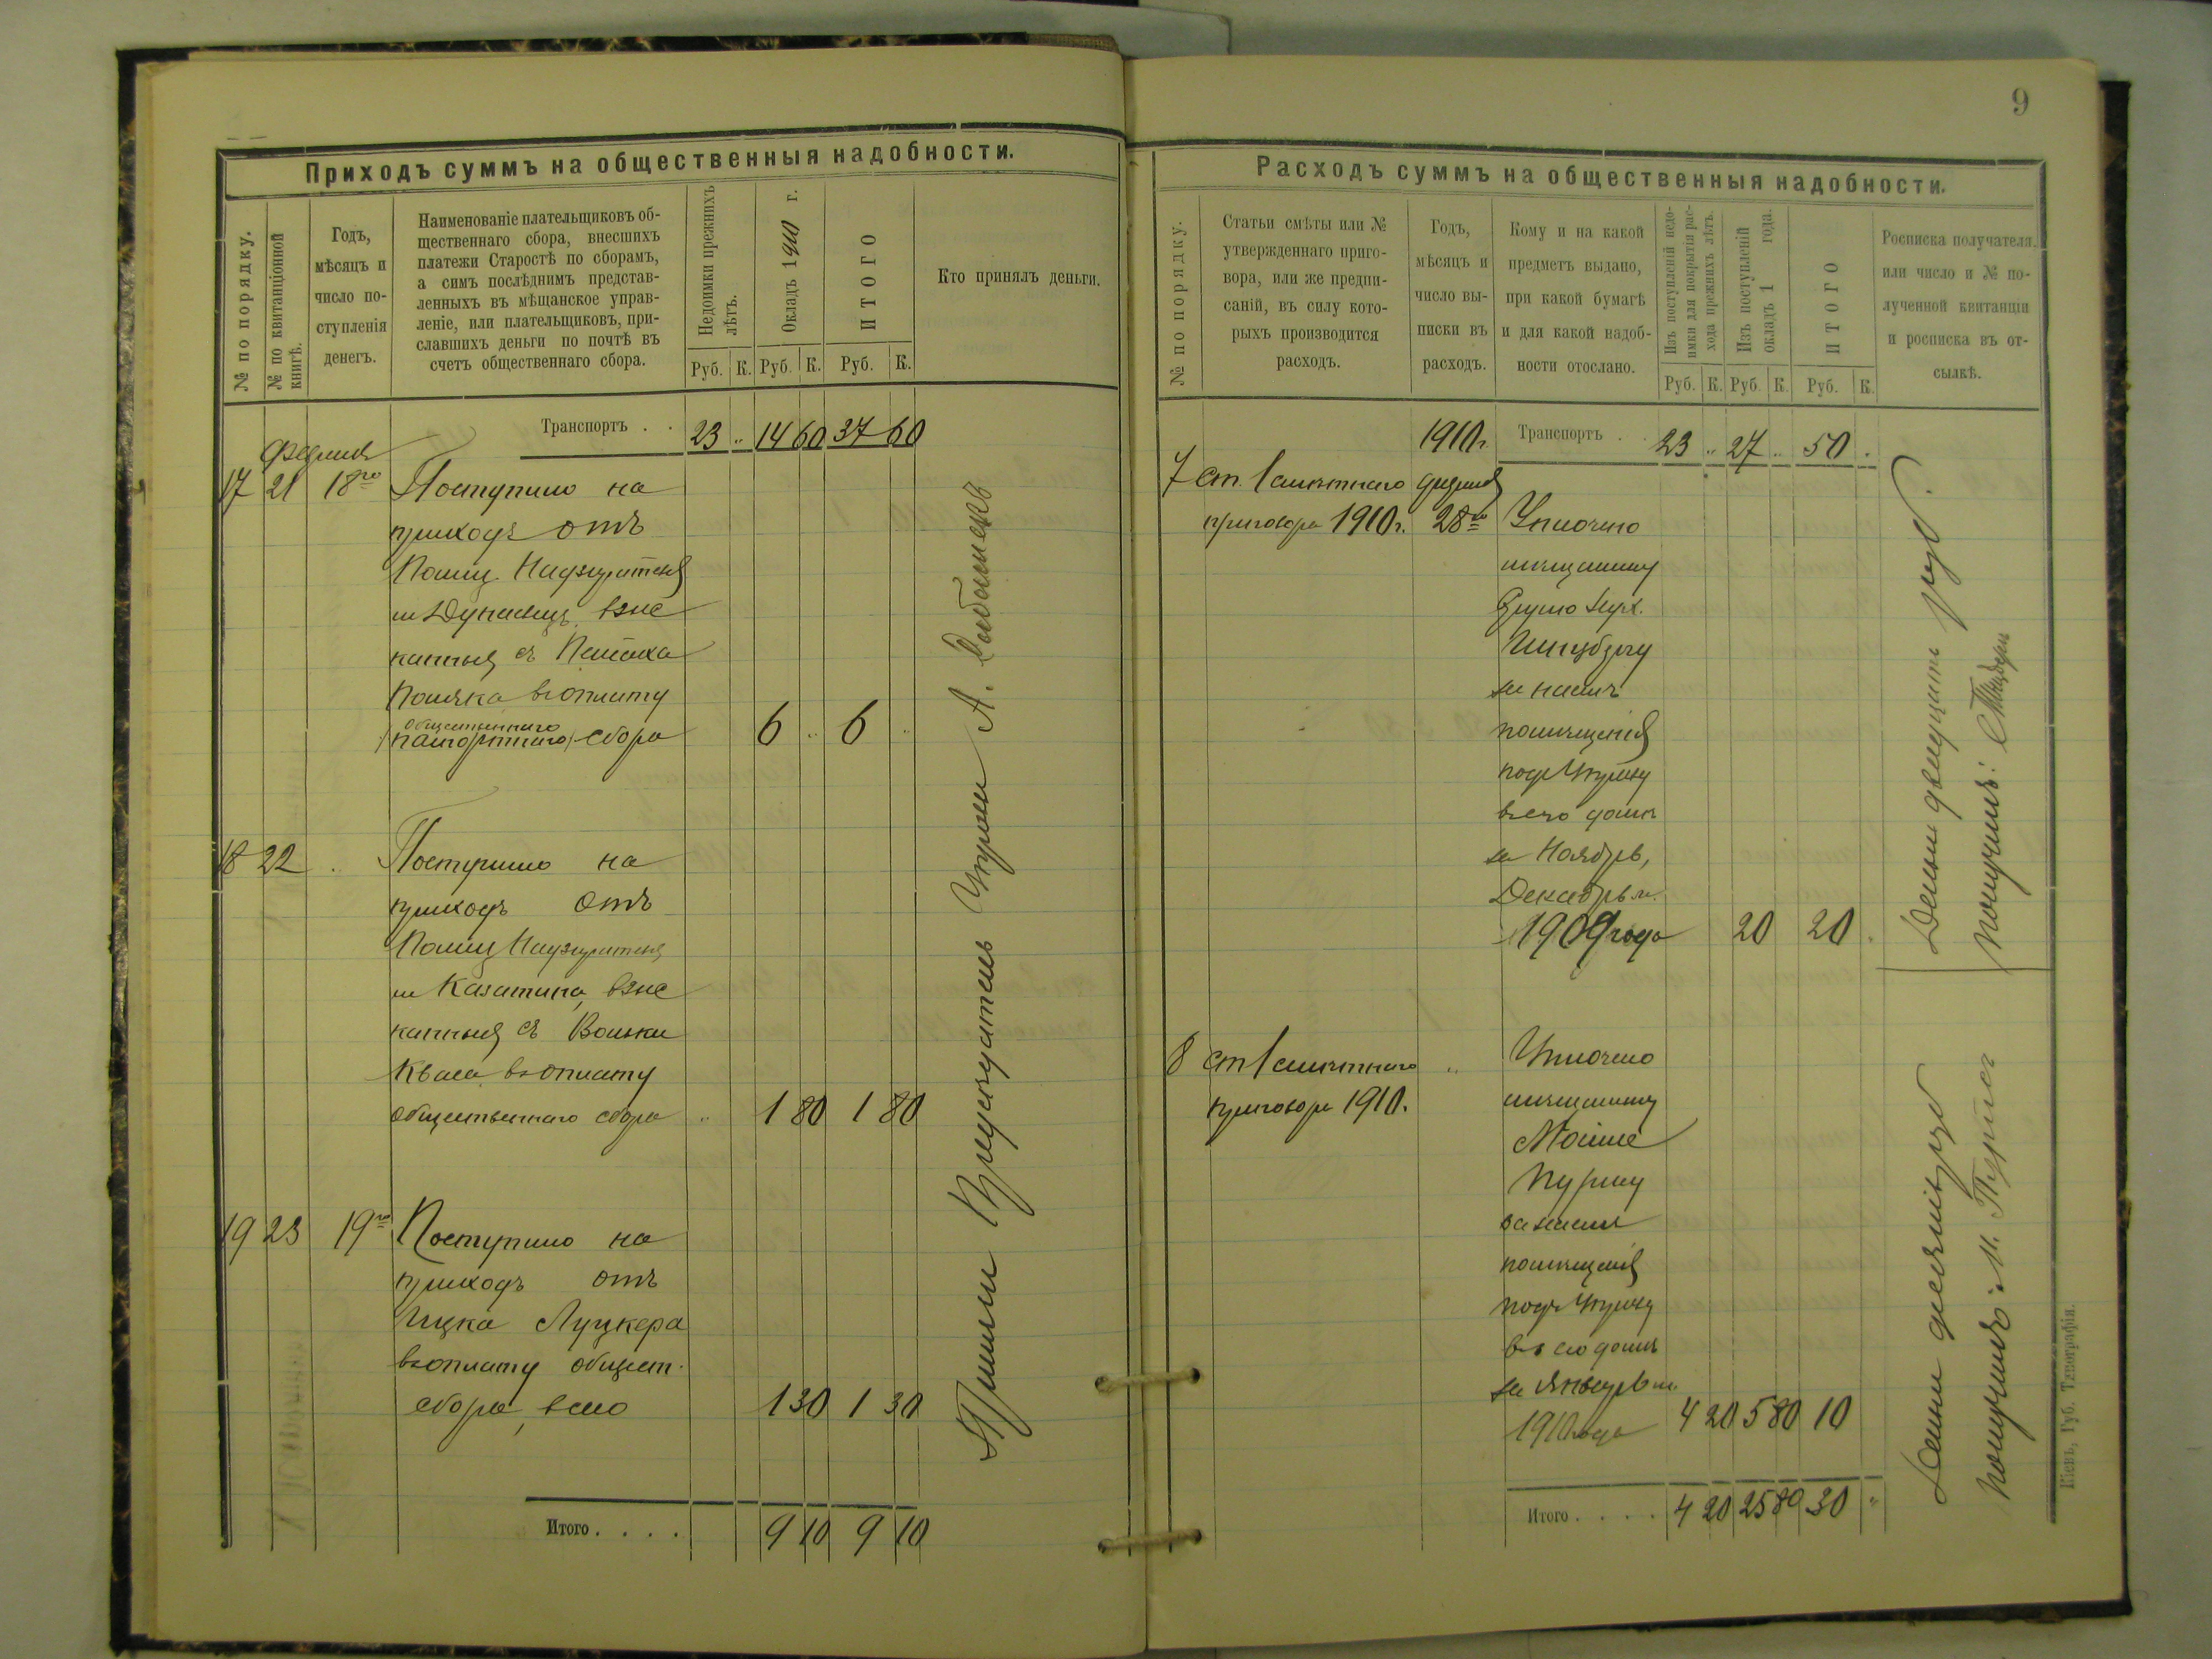 Приходъ суммъ на общественныя надобности.
№ по порядку.
№ по квитанціонной
книгѣ.
Годъ,
мѣсяцъ и
число по-
ступленія
денегъ.
Наименованіе плательщиковъ об-
щественнаго сбора, внесшихъ
платежи Старостѣ по сборамъ,
а симъ послѣднимъ представ-
ленныхъ въ мѣщанское управ-
леніе, или плательщиковъ, при-
славшихъ деньги по почтѣ въ
счетъ общественнаго сбора.
Недоимки прежнихъ
лѣтъ.
Окладъ 1910 г.
ИТОГО
Кто принялъ деньги.
Руб. К. Руб. К. Руб. К.
Транспортъ . . 23 „ 14 60 37 60
17 21 18го Поступило на
приходъ отъ
Полиц. Надзирателя
м Дунаевцъ, взыс
канныя съ
Поляка въ оплату
общественнаго
сбора 6 „ 6 „
18 22 „ Поступило на
приходъ отъ
Полиц Надзирателя
м Казатина, взыс
канныя съ Вольки
Кваса въ оплату
общественнаго сбора „ 1 80 1 80
19 23 19го Поступило на
приходъ отъ
Ицка Луцкера
въ оплату общест.
сбора, всего 1 30 1 30
Итого . . . . 9 10 9 10
Приняли Председатель Управы А.
9
Расходъ суммъ на общественныя надобности.
№ по порядку.
Статьи смѣты или №
утвержденнаго приго-
вора, или же предпи-
саній, въ силу кото-
рыхъ производится
расходъ.
Годъ,
мѣсяцъ и
число вы-
писки въ
расходъ.
Кому и на какой
предметъ выдано,
при какой бумагѣ
и для какой надоб-
ности отослано.
Изъ поступленій недо-
имки для покрытія рас-
хода прежнихъ лѣтъ.
Изъ поступленій
окладъ 1 года.
ИТОГО
Росписка получателя.
или число и № по-
лученной квитанціи
и росписка въ от-
сылкѣ.
Руб. К. Руб. К. Руб. К.
1910г. Транспортъ . . 23 „ 27 „ 50 „
7 ст. 1 смѣтнаго
приговора 1910г. 28го Уплочено
мѣщанину
за наемъ
помѣщенія
подъ Управу
въ его домѣ
за Ноябрь,
Декабрь м.
1909 года 20 20
8 ст 1 смѣтнаго „ Уплочено
приговора 1910г. мѣщанину
Мойше
за наемъ
помѣщенія
подъ Управу
въ его домѣ
за Январь м.
1910 года 4 20 5 80 10
Итого . . . . 4 20 25 80 30 „
Деньги двадцать руб.
получилъ:
Деньги десять руб
получилъ: М.
Кіевъ, Губ. Типографія.